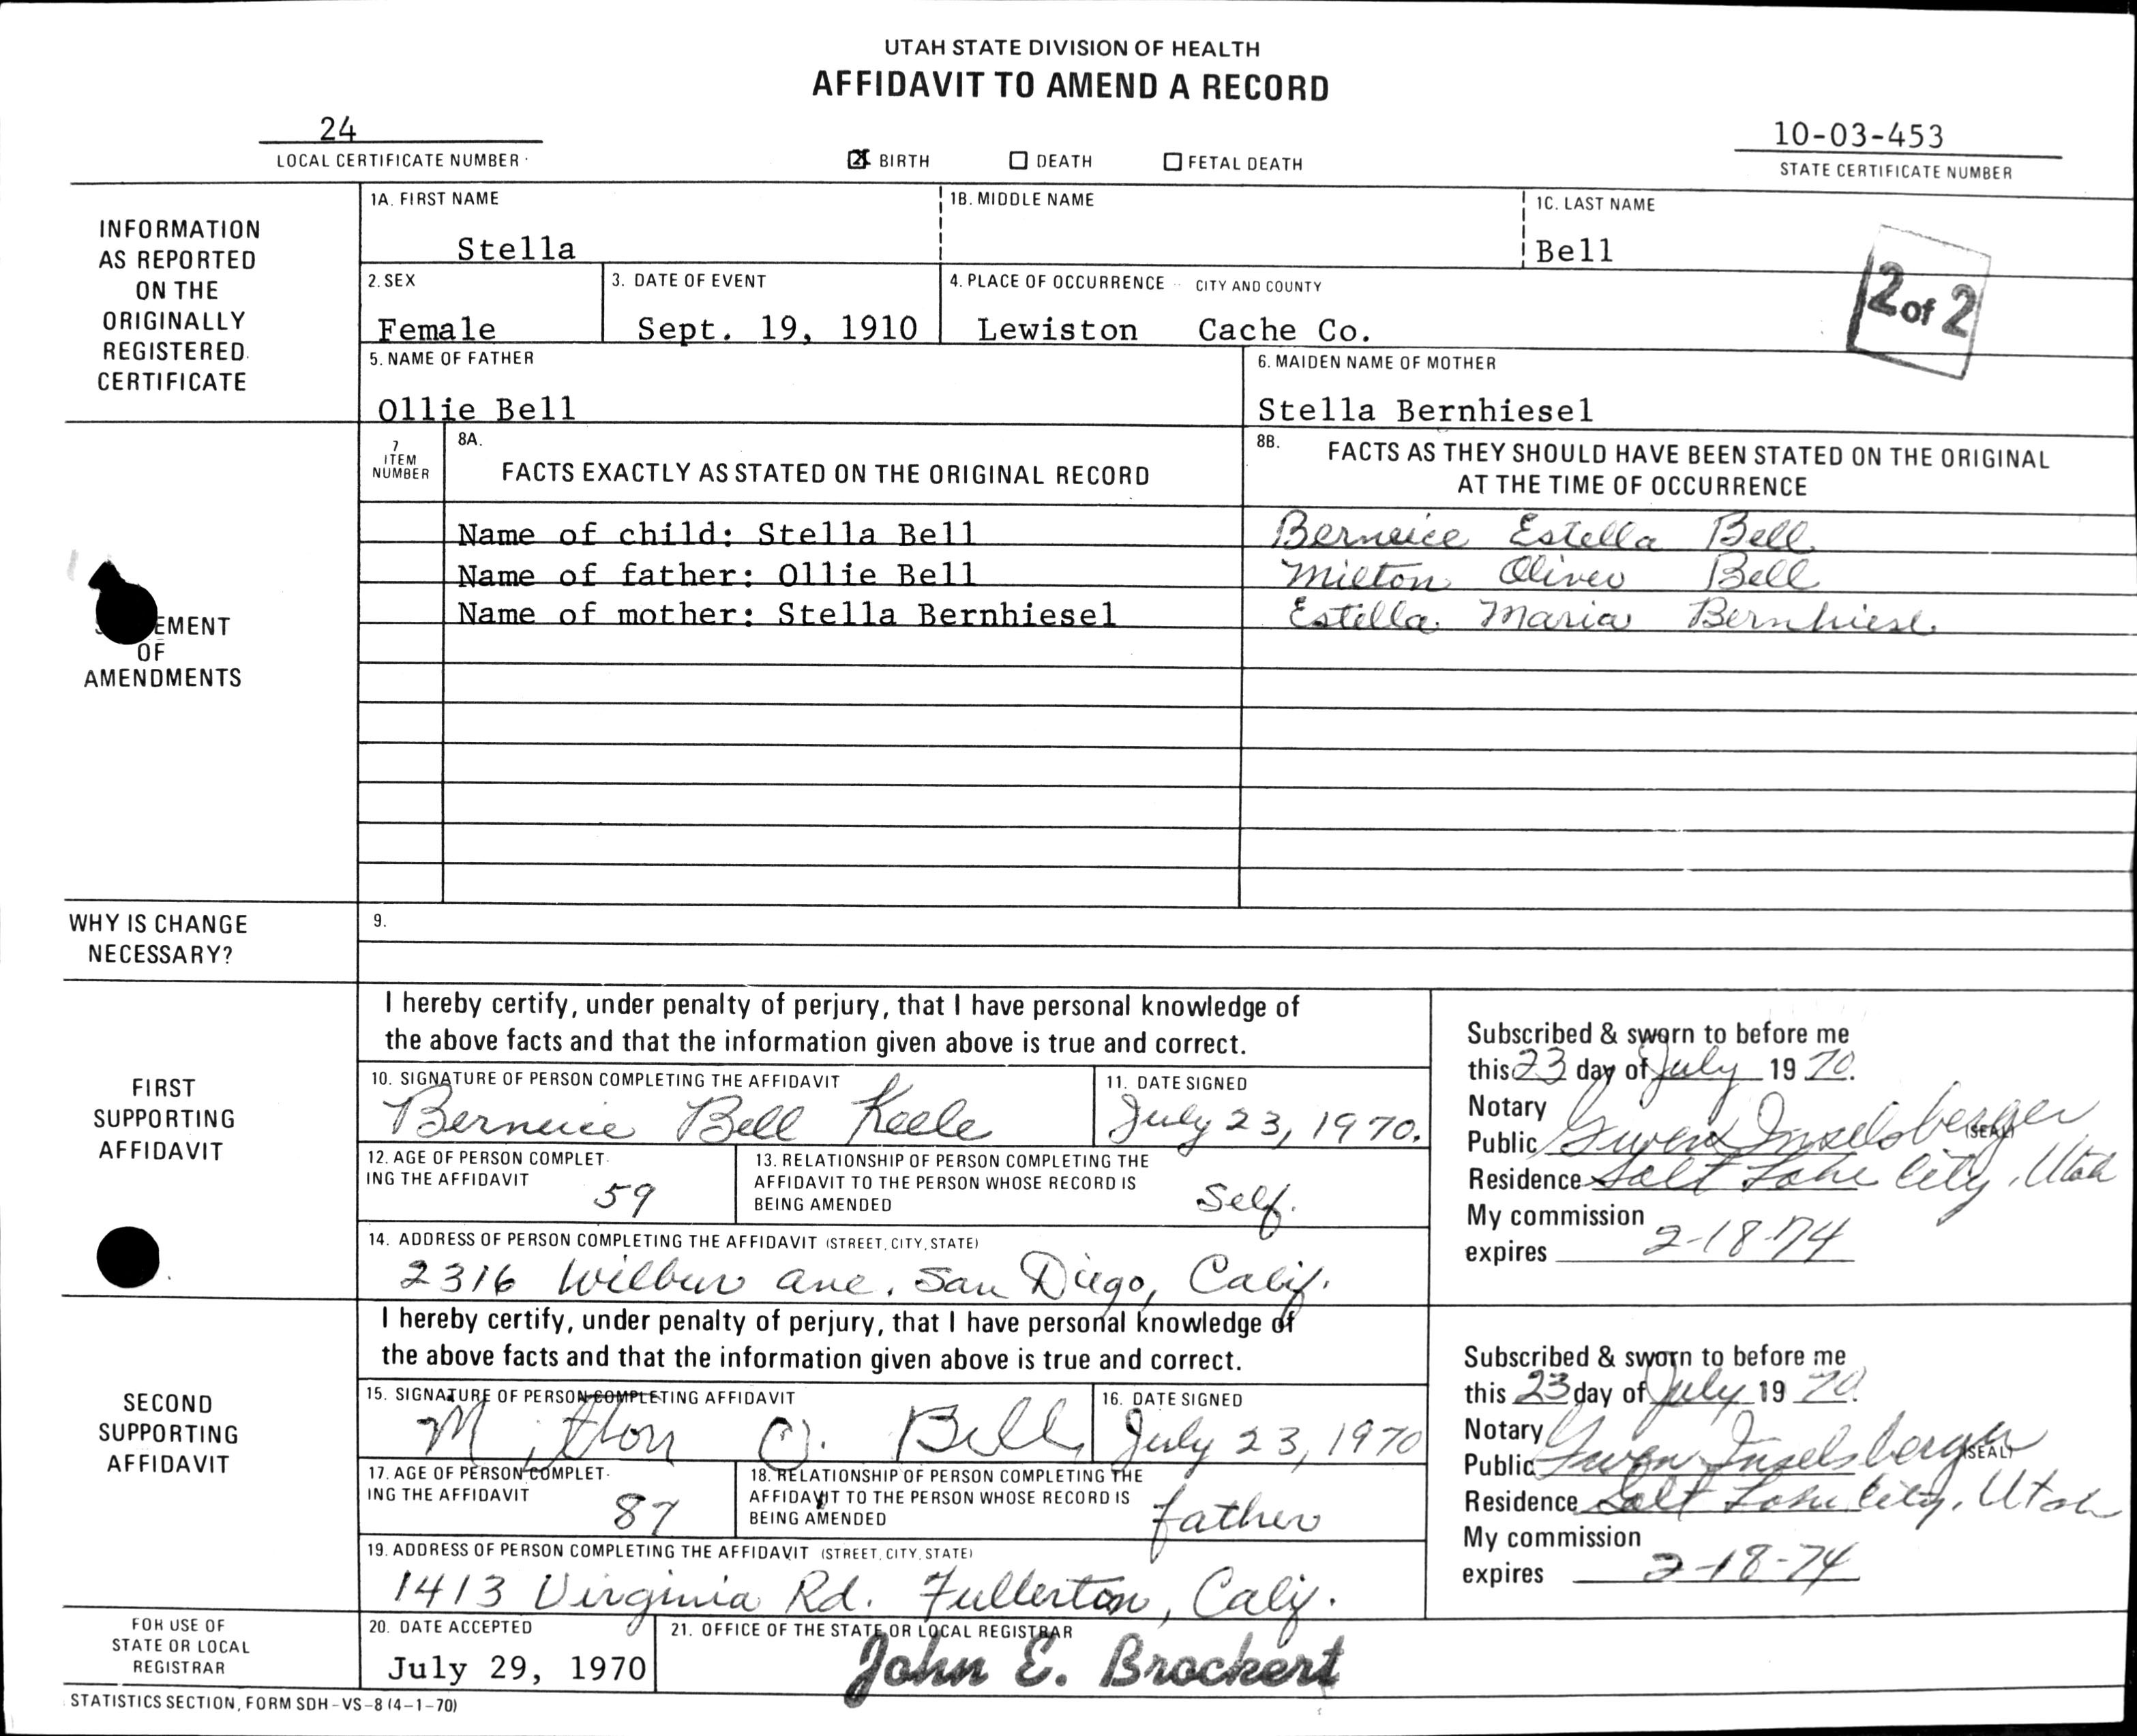 UTAH STATE DIVISION OF HEALTH
AFFIDAVIT TO AMEND A RECORD
24
LOCAL CERTIFICATE NUMBER
☒ BIRTH ☐ DEATH ☐ FETAL DEATH
10-03-453
STATE CERTIFICATE NUMBER
INFORMATION
AS REPORTED
ON THE
ORIGINALLY
REGISTERED
CERTIFICATE
1A. FIRST NAME
Stella
1B. MIDDLE NAME
1C. LAST NAME
Bell
2 of 2
2. SEX
Female
3. DATE OF EVENT
Sept. 19, 1910
4. PLACE OF OCCURRENCE CITY AND COUNTY
Lewiston Cache Co.
5. NAME OF FATHER
Ollie Bell
6. MAIDEN NAME OF MOTHER
Stella Bernhiesel
EMENT
OF
AMENDMENTS
7
ITEM
NUMBER
8A.
FACTS EXACTLY AS STATED ON THE ORIGINAL RECORD
8B. FACTS AS THEY SHOULD HAVE BEEN STATED ON THE ORIGINAL
AT THE TIME OF OCCURRENCE
Name of child: Stella Bell Berneice Estella Bell
Name of father: Ollie Bell Milton Oliver Bell
Name of mother: Stella Bernhiesel Estella Maria Bernhiesl
WHY IS CHANGE
NECESSARY?
9.
FIRST
SUPPORTING
AFFIDAVIT
I hereby certify, under penalty of perjury, that I have personal knowledge of
the above facts and that the information given above is true and correct.
10. SIGNATURE OF PERSON COMPLETING THE AFFIDAVIT
Berneice Bell Keele
11. DATE SIGNED
July 23, 1970.
12. AGE OF PERSON COMPLET-
ING THE AFFIDAVIT
59
13. RELATIONSHIP OF PERSON COMPLETING THE
AFFIDAVIT TO THE PERSON WHOSE RECORD IS
BEING AMENDED
Self.
14. ADDRESS OF PERSON COMPLETING THE AFFIDAVIT (STREET, CITY, STATE)
2316 Wilbur ave. San Diego, Calif.
Subscribed & sworn to before me
this 23 day of July 19 70.
Notary
Public Gwen Inselsberger (SEAL)
Residence Salt Lake City, Utah
My commission
expires 2-18-74
SECOND
SUPPORTING
AFFIDAVIT
I hereby certify, under penalty of perjury, that I have personal knowledge of
the above facts and that the information given above is true and correct.
15. SIGNATURE OF PERSON COMPLETING AFFIDAVIT
Milton O. Bell
16. DATE SIGNED
July 23, 1970
17. AGE OF PERSON COMPLET-
ING THE AFFIDAVIT
87
18. RELATIONSHIP OF PERSON COMPLETING THE
AFFIDAVIT TO THE PERSON WHOSE RECORD IS
BEING AMENDED
father
19. ADDRESS OF PERSON COMPLETING THE AFFIDAVIT (STREET, CITY, STATE)
1413 Virginia Rd. Fullerton, Calif.
Subscribed & sworn to before me
this 23 day of July 19 70.
Notary
Public Gwen Inselsberger (SEAL)
Residence Salt Lake City, Utah
My commission
expires 2-18-74
FOR USE OF
STATE OR LOCAL
REGISTRAR
20. DATE ACCEPTED
July 29, 1970
21. OFFICE OF THE STATE OR LOCAL REGISTRAR
John E. Brockert
STATISTICS SECTION, FORM SDH-VS-8 (4-1-70)